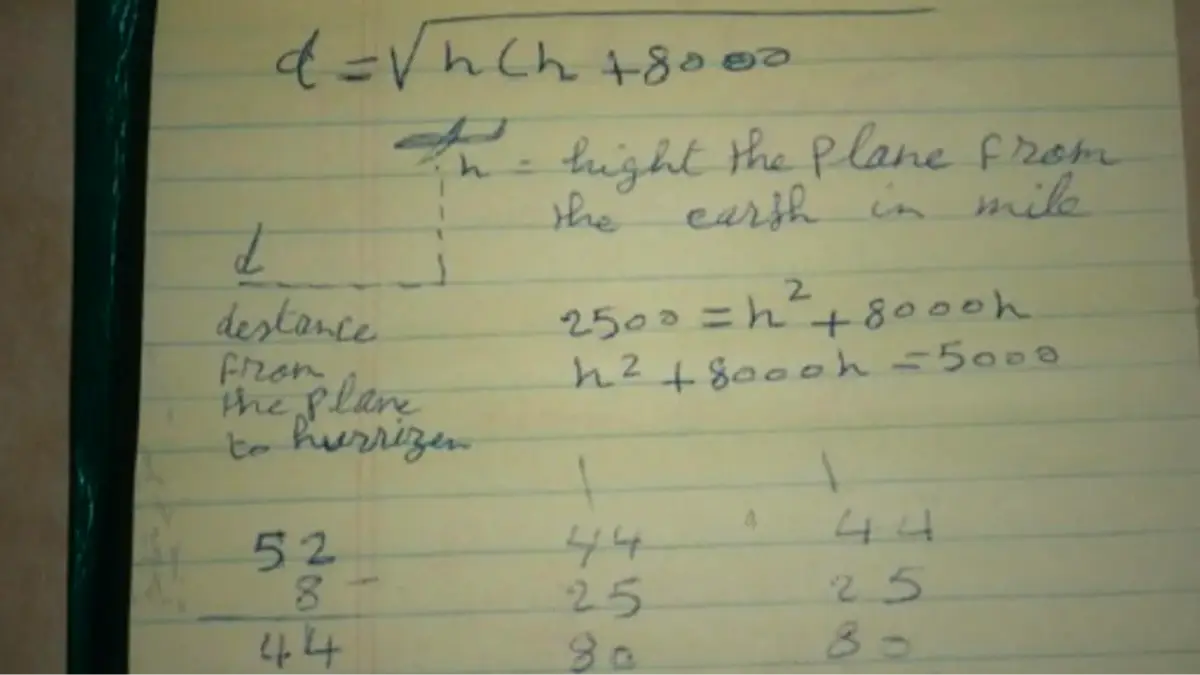 d = √h(h + 8000
h = hight the plane from
the earth in mile
d
destance
from
the plane
to hurrizen
2500 = h² + 8000h
h² + 8000h = 5000
52
8 -
44
44
25
80
44
25
80